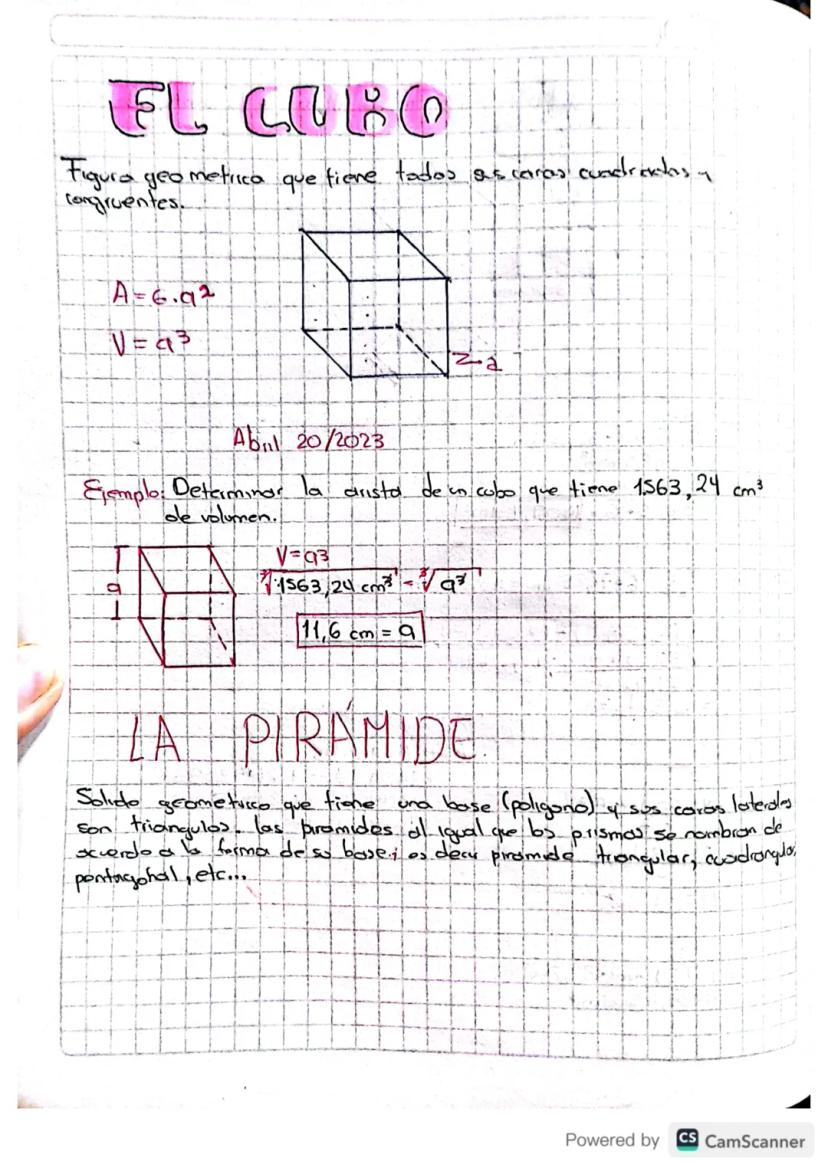 EL CUBO
Figura geometrica que tiene todas sus caras cuadradas y
congruentes.
A = 6.a²
V = a³
a
Abril 20/2023
Ejemplo: Determinar la arista de un cubo que tiene 1563,24 cm³
de volumen.
V = a³
a
∛1563,24 cm³ = ∛a³
11,6 cm = a
LA PIRÁMIDE
Solido geometrico que tiene una base (poligono) y sus caras laterales
son triangulos. las piramides al igual que los prismas se nombran de
acuerdo a la forma de su base; es decir piramide triangular, cuadrangular,
pentagonal, etc...
Powered by CS CamScanner